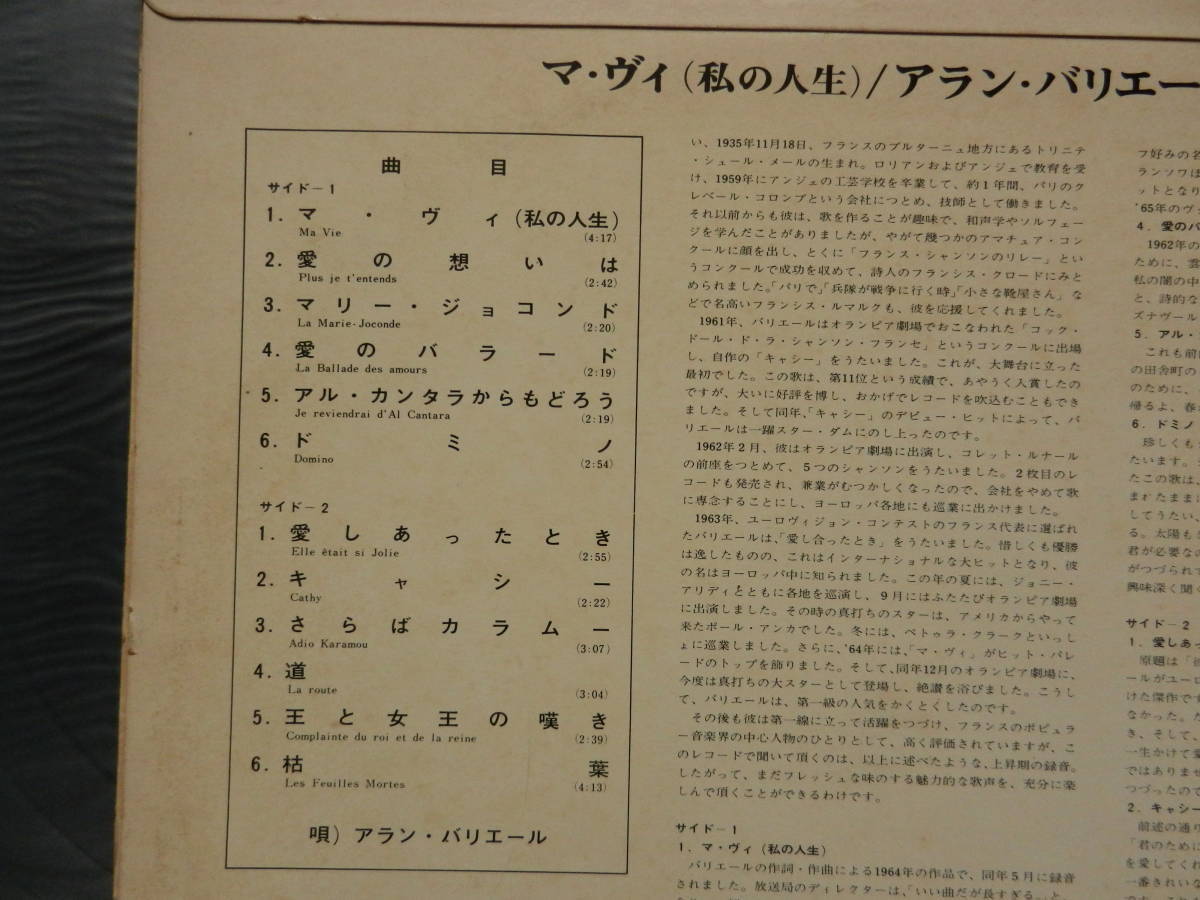 マ・ヴィ(私の人生)/アラン・バリエー
曲目
サイド－1
1. マ・ヴィ(私の人生)
Ma Vie (4:17)
2. 愛の想いは
Plus je t'entends (2:42)
3. マリー・ジョコンド
La Marie-Joconde (2:20)
4. 愛のバラード
La Ballade des amours (2:19)
5. アル・カンタラからもどろう
Je reviendrai d'Al Cantara (2:19)
6. ドミノ
Domino (2:54)
サイド－2
1. 愛しあったとき
Elle êtait si Jolie (2:55)
2. キャシー
Cathy (2:22)
3. さらばカラムー
Adio Karamou (3:07)
4. 道
La route (3:04)
5. 王と女王の嘆き
Complainte du roi et de la reine (2:39)
6. 枯葉
Les Feuilles Mortes (4:13)
唄) アラン・バリエール
い、1935年11月18日、フランスのブルターニュ地方にあるトリニテ
・シュール・メールの生まれ。ロリアンおよびアンジェで教育を受
け、1959年にアンジェの工芸学校を卒業して、約1年間、パリのク
レベール・コロンブという会社につとめ、技師として働きました。
それ以前からも彼は、歌を作ることが趣味で、和声学やソルフェー
ジを学んだことがありましたが、やがて幾つかのアマチュア・コン
クールに顔を出し、とくに「フランス・シャンソンのリレー」とい
うコンクールで成功を収めて、詩人のフランシス・クロードにみと
められました。「パリで」「兵隊が戦争に行く時」「小さな靴屋さん」な
どで名高いフランシス・ルマルクも、彼を応援してくれました。
1961年、バリエールはオランピア劇場でおこなわれた「コック・
ドール・ド・ラ・シャンソン・フランセ」というコンクールに出場
し、自作の「キャシー」をうたいました。これが、大舞台に立った
最初でした。この歌は、第11位という成績で、あやうく入賞したの
ですが、大いに好評を博し、おかげでレコードを吹込むこともでき
ました。そして同年、「キャシー」のデビュー・ヒットによって、バ
リエールは一躍スター・ダムにのし上ったのです。
1962年2月、彼はオランピア劇場に出演し、コレット・ルナール
の前座をつとめて、5つのシャンソンをうたいました。2枚目のレ
コードも発売され、兼業がむつかしくなったので、会社をやめて歌
に専念することにし、ヨーロッパ各地にも巡業に出かけました。
1963年、ユーロヴィジョン・コンテストのフランス代表に選ばれ
たバリエールは、「愛し合ったとき」をうたいました。惜しくも優勝
は逸したものの、これはインターナショナルな大ヒットとなり、彼
の名はヨーロッパ中に知られました。この年の夏には、ジョニー・
アリディとともに各地を巡演し、9月にはふたたびオランピア劇場
に出演しました。その時の真打ちのスターは、アメリカからやって
来たポール・アンカでした。冬には、ペトゥラ・クラークといっし
ょに巡業しました。さらに、'64年には、「マ・ヴィ」がヒット・パレ
ードのトップを飾りました。そして、同年12月のオランピア劇場に、
今度は真打ちの大スターとして登場し、絶讃を浴びました。こうし
て、バリエールは、第一級の人気をかくとくしたのです。
その後も彼は第一線に立って活躍をつづけ、フランスのポピュラ
ー音楽界の中心人物のひとりとして、高く評価されていますが、こ
のレコードで聞いて頂くのは、以上に述べたような、上昇期の録音。
したがって、まだフレッシュな味のする魅力的な歌声を、充分に楽
しんで頂くことができるわけです。
サイド－1
1. マ・ヴィ(私の人生)
バリエールの作詞・作曲による1964年の作品で、同年5月に録音
されました。放送局のディレクターは、「いい曲だが長すぎる」と、
フ好みの名
ランソワは
ットとなり
'65年のヴ
4. 愛のバ
1962年の
ために、雲
私の闇の中
と、詩的な
ズナヴール
5. アル・
これも前
の田舎町の
のために、
帰るよ、春
6. ドミノ
珍しくも
たいます。
たこの歌は、
まれたままに
してうたい、
る。太陽も
君が必要なの
がつづられて
興味深く聞く
サイド－2
1. 愛しあっ
原題は「彼
ールがユーロ
けた傑作です
なかった。だ
き、そして、
一生かけて愛
ではありませ
つづったので
2. キャシー
前述の通り
「君のために
を愛してくれ
一番きれいな